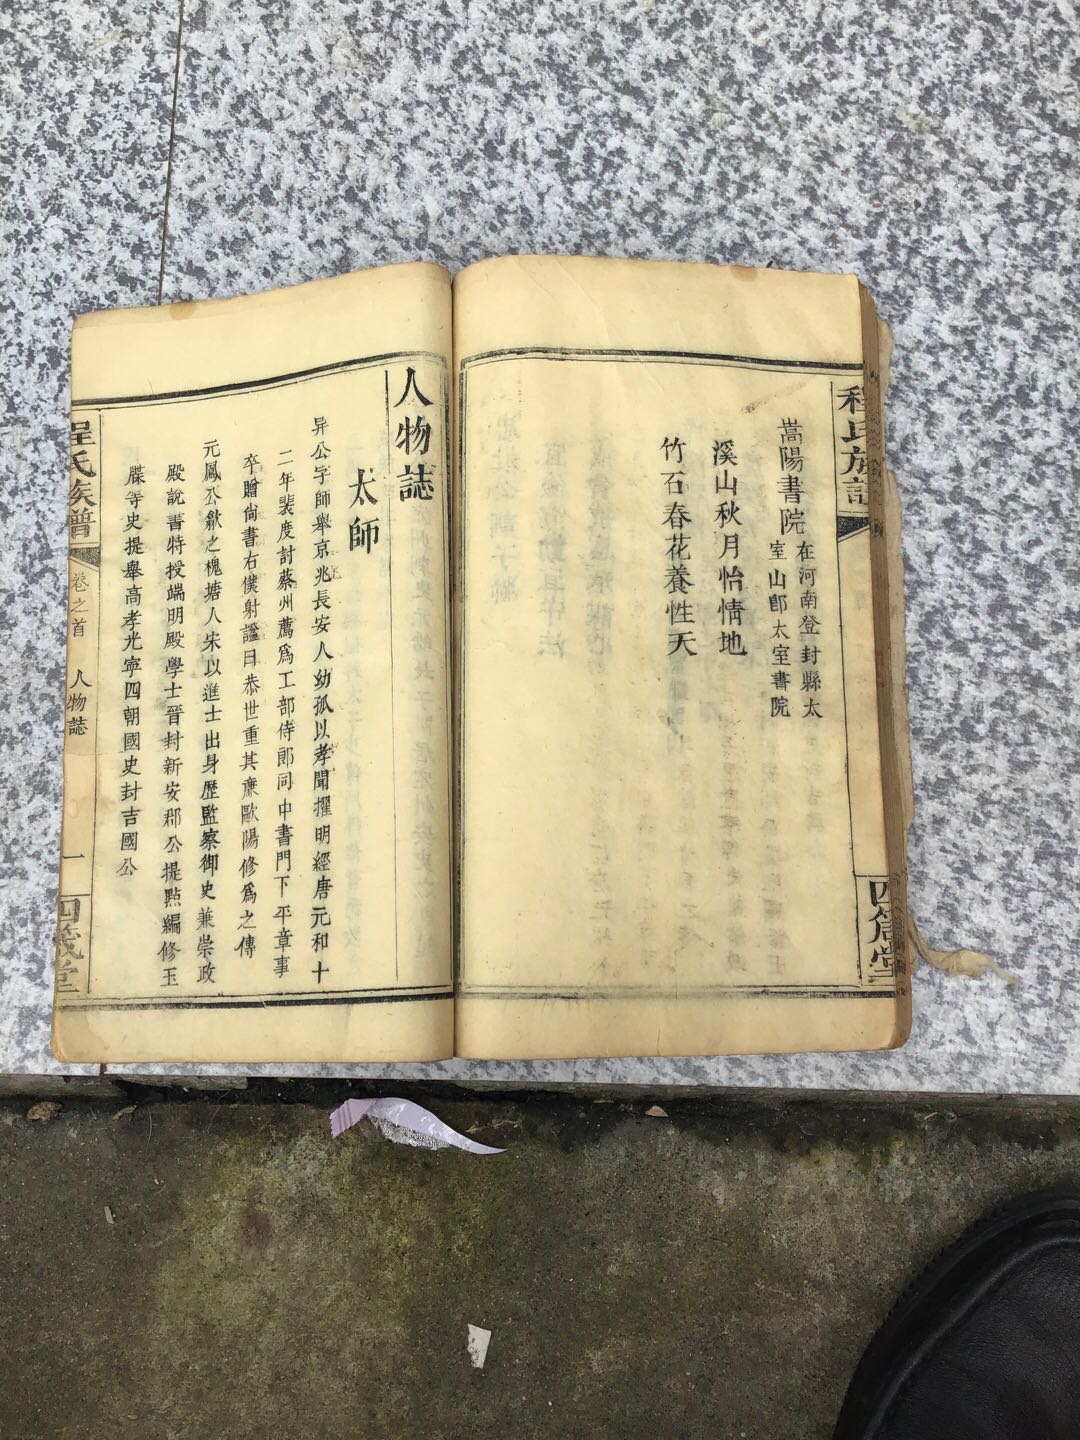 程氏族譜
四箴堂
嵩陽書院
在河南登封縣太
室山卽太室書院
溪山秋月怡情地
竹石春花養性天
人物誌
太師
异公字師舉京兆長安人幼孤以孝聞擢明經唐元和十
二年裴度討蔡州薦爲工部侍郎同中書門下平章事
卒贈尙書右僕射諡曰恭世重其廉歐陽修爲之傳
元鳳公歙之槐塘人宋以進士出身歷監察御史兼崇政
殿說書特授端明殿學士晉封新安郡公提㸃編修玉
牒等史提舉高孝光寧四朝國史封吉國公
程氏族譜
卷之首
人物誌
一
四箴堂